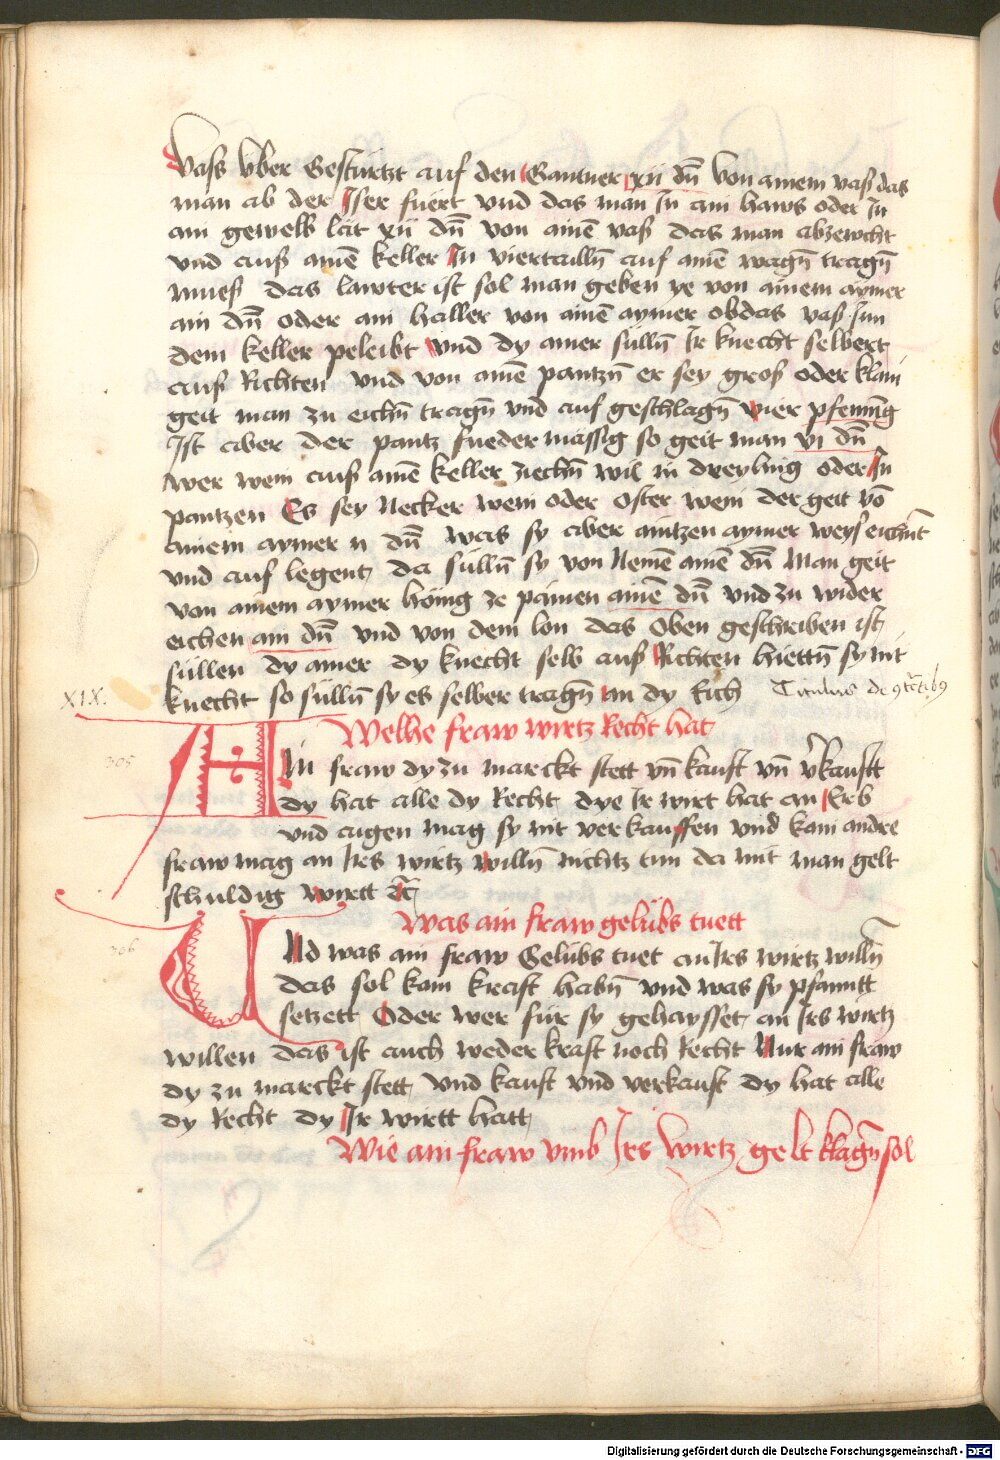 vass vber gesturtzt auf den Gantner xii dn̄ von ainem vaß das
man ab der Iser fuert vnd das man In ain haws oder In
ain gewelb lait xii dn̄ von ainē vaß das man abzewcht
vnd auß ainē keller In viertailln̄ auf ainē wagn̄ tragn̄
mueß das lawter ist sol man geben ye von ainem aymer
ain dn̄ oder ain haller von ainē aymer obdas vaß Inn
dem keller peleibt vnd dy amer sulln̄ Ir knecht selbert
auß Richten vnd von ainē pantzn̄ er sey groß oder klain
geit man zu eichn̄ tragn̄ vnd auf geschlagn̄ vier pfennīg
Ist aber der pantz fueder mässig so geit man vi dn̄
wer wein auß ainē keller ziechn̄ wil in dreyling oder In
pantzen Es sey Necker wein oder Oster wein der geit vō
ainem aymer ii dn̄ was sy aber aintzen aymer weyß eichnt
vnd auf legent da sulln̄ sy von Nemē ainē dn̄ Man geit
von ainem aymer hönig ze painen ainē dn̄ vnd zu wider
eichen ain dn̄ vnd von dem lon das Oben geschriben ist
sullen dy amer dy knecht selb auß Richten hiettn̄ sy nit
knecht so sulln̄ sy es selber tragn̄ an dy Eich
Titulus de
XIX.
Welhe fraw wirtz Recht hat
305
AIn fraw dy zu marckt stett vn̄ kauft vn̄ v̄kaufft
dy hat alle dy Recht dye Ir wirt hat an Erb
vnd aigen mag sy nit verkauffen vnd kain andre
fraw mag an Irs wirtz willn̄ nichtz tun da mit man gelt
schuldig wirtt
Was ain fraw gelübs tuett
306
UNd was ain fraw Gelübs tuet an Irs wirtz willn̄
das sol kain kraft habn̄ vnd was sy pfanntt
setzett Oder wer für sy gehaysset an Irs wirtz
willen das ist auch weder kraft noch Recht Nur ain fraw
dy zu marckt stett vnd kauft vnd verkauft dy hat alle
dy Recht dy Ir wirtt hatt
Wie ain fraw vmb Irs wirtz gelt klagn̄ sol
Digitalisierung gefördert durch die Deutsche Forschungsgemeinschaft - DFG